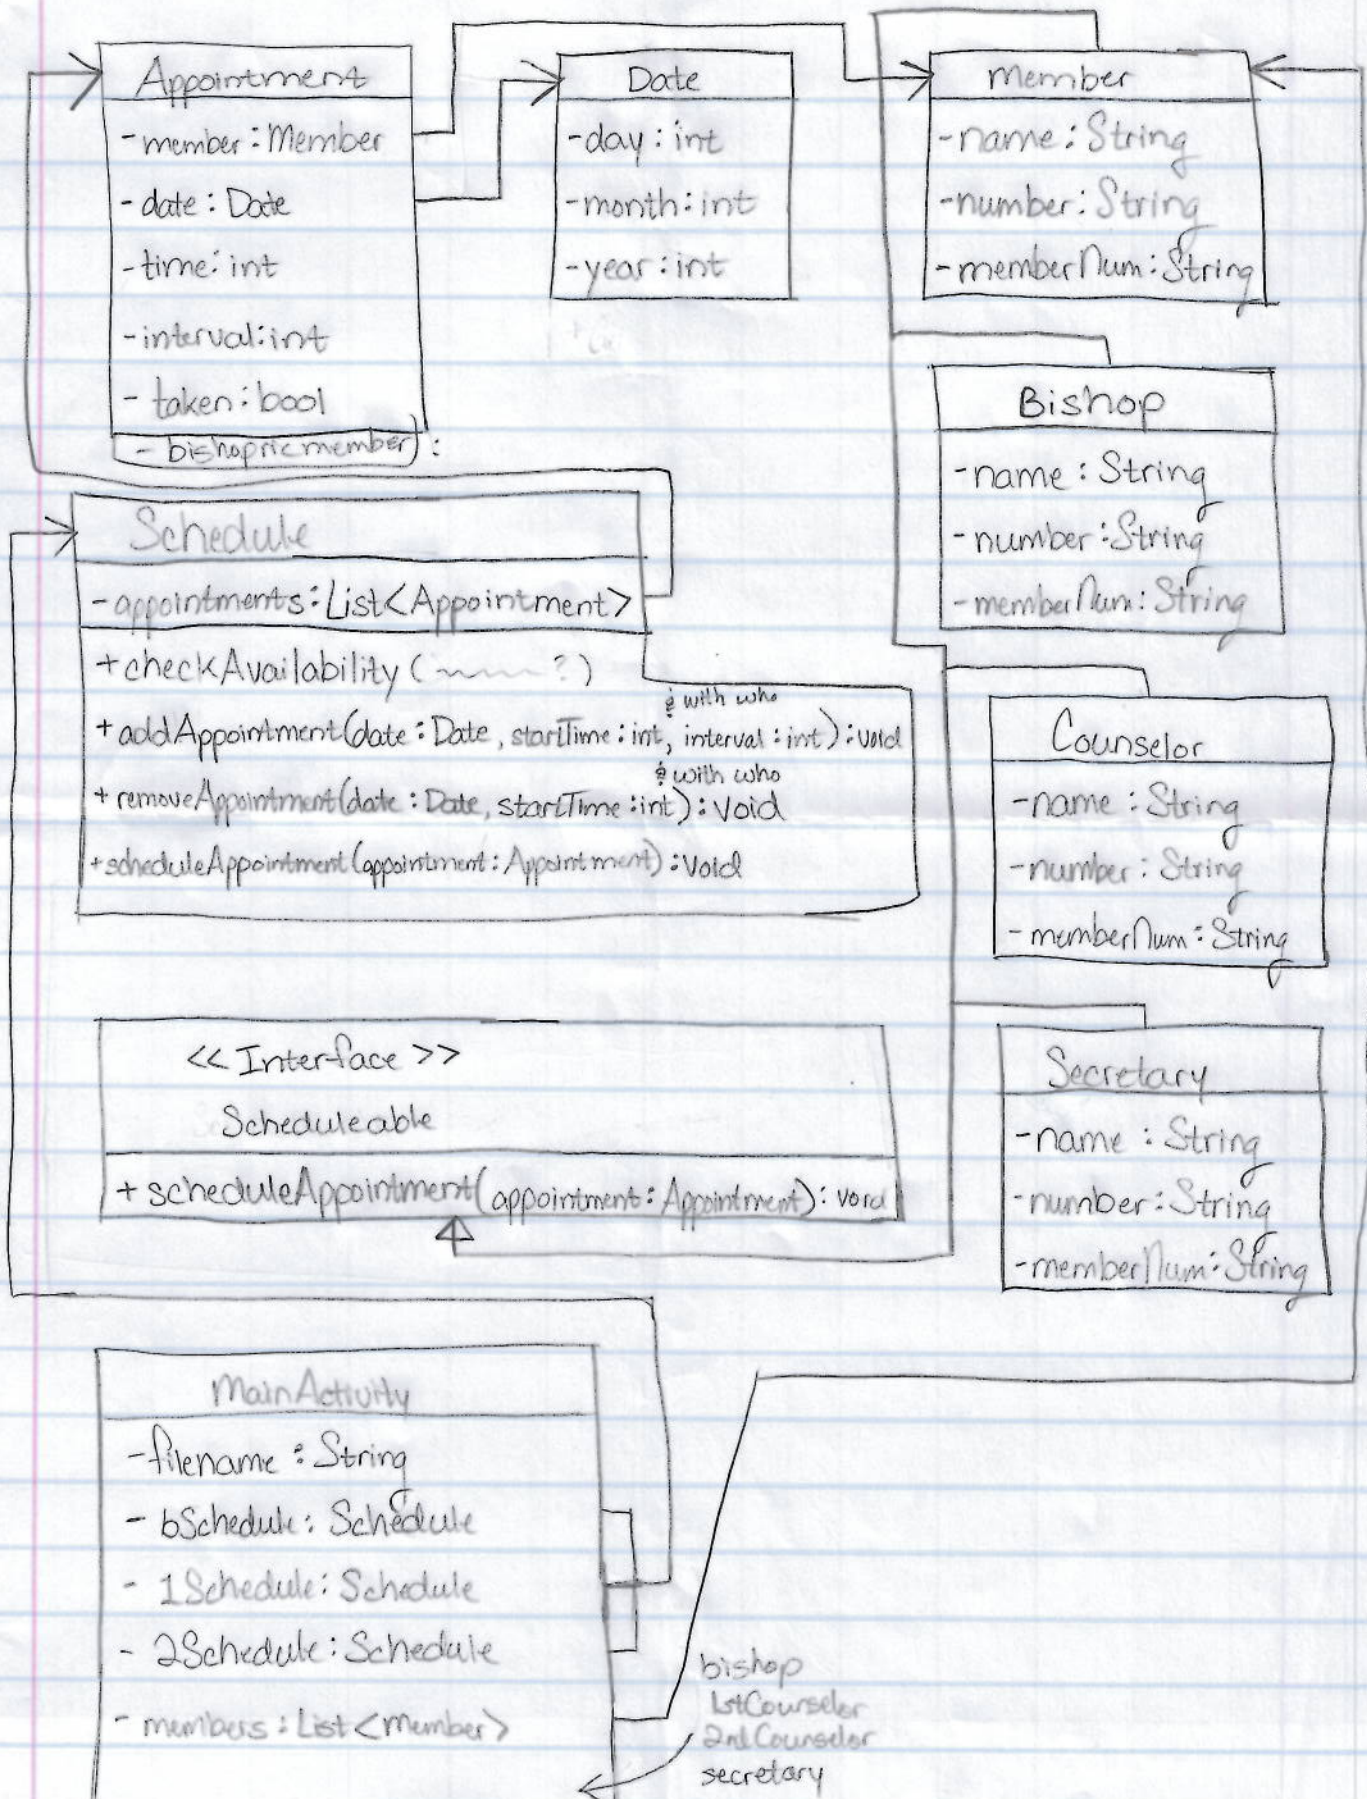 Appointment
-member: Member
-date: Date
-time: int
-interval: int
- taken: bool
- bishopricmember):
Date
-day: int
-month: int
-year: int
Member
-name: String
-number: String
-memberNum: String
Bishop
-name: String
-number: String
-memberNum: String
Schedule
-appointments: List<Appointment>
+checkAvailability( ?)
& with who
+addAppointment(date: Date, startTime: int, interval: int): void
& with who
+removeAppointment(date: Date, startTime: int): void
+scheduleAppointment(appointment: Appointment): void
Counselor
-name: String
-number: String
-memberNum: String
<<Interface>>
Scheduleable
+scheduleAppointment(appointment: Appointment): void
Secretary
-name: String
-number: String
-memberNum: String
MainActivity
-filename: String
- bSchedule: Schedule
- 1Schedule: Schedule
- 2Schedule: Schedule
- members: List<Member>
bishop
1stCounselor
2ndCounselor
secretary